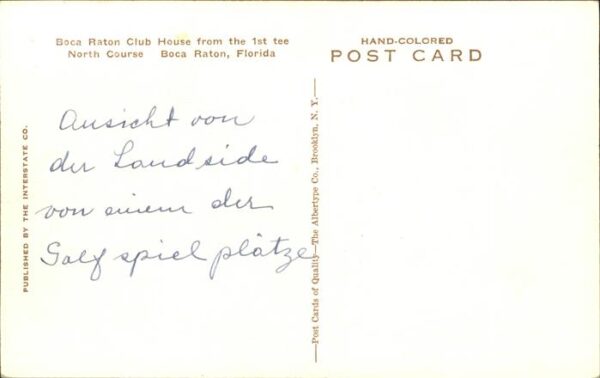 Boca Raton Club House from the 1st tee
North Course Boca Raton, Florida
HAND-COLORED
POST CARD
PUBLISHED BY THE INTERSTATE CO.
Ansicht von
der Landside
von einem der
Golf spiel plätze
Post Cards of Quality—The Albertype Co., Brooklyn, N. Y.